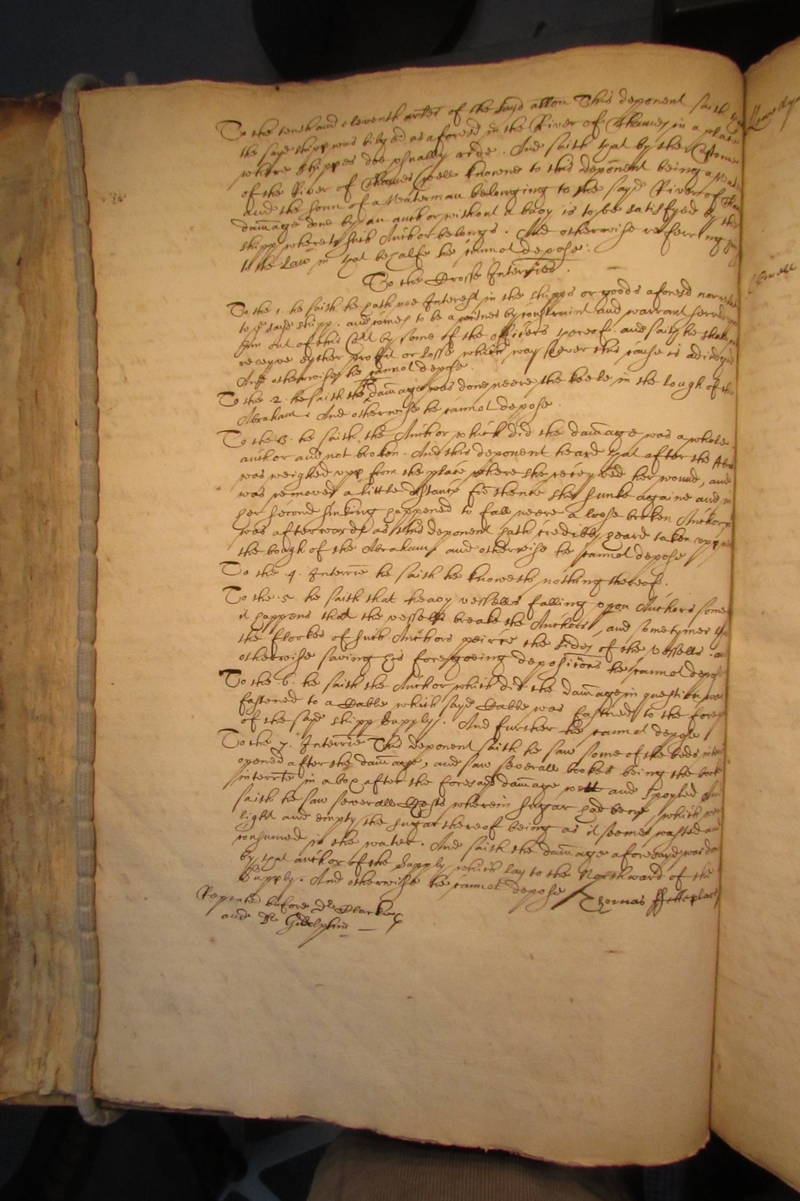 To the tenth and eleventh arles of the sayd allon This deponent saith
the sayd shipp was bilged as aforesd in the River of Thames in a place
where shippes doe usually ride. And saith that by the Custome
of the River of Thames well knowne to this deponent being a
and the sonn of a Waterman belonging to the sayd River of
damage done by an anchor without a buoy is to be satisfyed by the
shipp whereto such Anchor belongs. And otherwise referring
to the Law in that behalfe he cannot depose.
To the Crosse Interries.
To the 1. he saith he hath noe Interest in the shipps or goods aforesd nor
shipp. and comes to be a witnes by constraint and warrant
him out of this Cort by some of the officers thereof and saith he shall
receyve eyther proffit or losse which way soever this cause is decided
And otherwise he cannot depose.
To the 2. he saith the damage was done neere the keele in the lough of the
Abraham: And otherwise he cannot depose.
To the 3. he saith the Anchor which did the damage was a whole
anchor and not broken. And this deponent heard that after the
was weighed upp from the place where she receyved her wound, and
was removed a little distance fro thence she sunke againe and
her second sinking happened to fall neere a loose broken Anchor
was afterwards as this deponent hath credibly heard taken upp
the bough of the Abraham, and otherwise he cannot depose
To the .4. Interrie he saith he knoweth nothing thereof.
To the .5. he saith that heavy vessells falling upon Anchors some
it happens that the vessells breake the Anchors, and sometymes
the flookes of such Anchors peirce the sides of the vessells.
otherwise saving his foregoeing depositions he cannot depose
To the 6. he saith the Anchor which did the damage in question was
fastened to a Cable which sayd Cable was fastned to the
of the sayd shipp Supply. And further he cannot depose
To the 7. Interrie This deponent saith he saw some of the beds
opened after the damage, and saw severall bookes being the
interrte in a box after the foresd damage wett and spoyled
saith he saw severall Chests wherein sugar had beene which
light and empty the sugar thereof being as it seemes wasted
consumed in the water. And saith the damage aforesayd was
by that anchor of the Supply which lay to the Northward of the
Supply. And otherwise he cannot depose
Thomas ffetteplace
Repeated before Dr Clarke
and Dr Godolphin